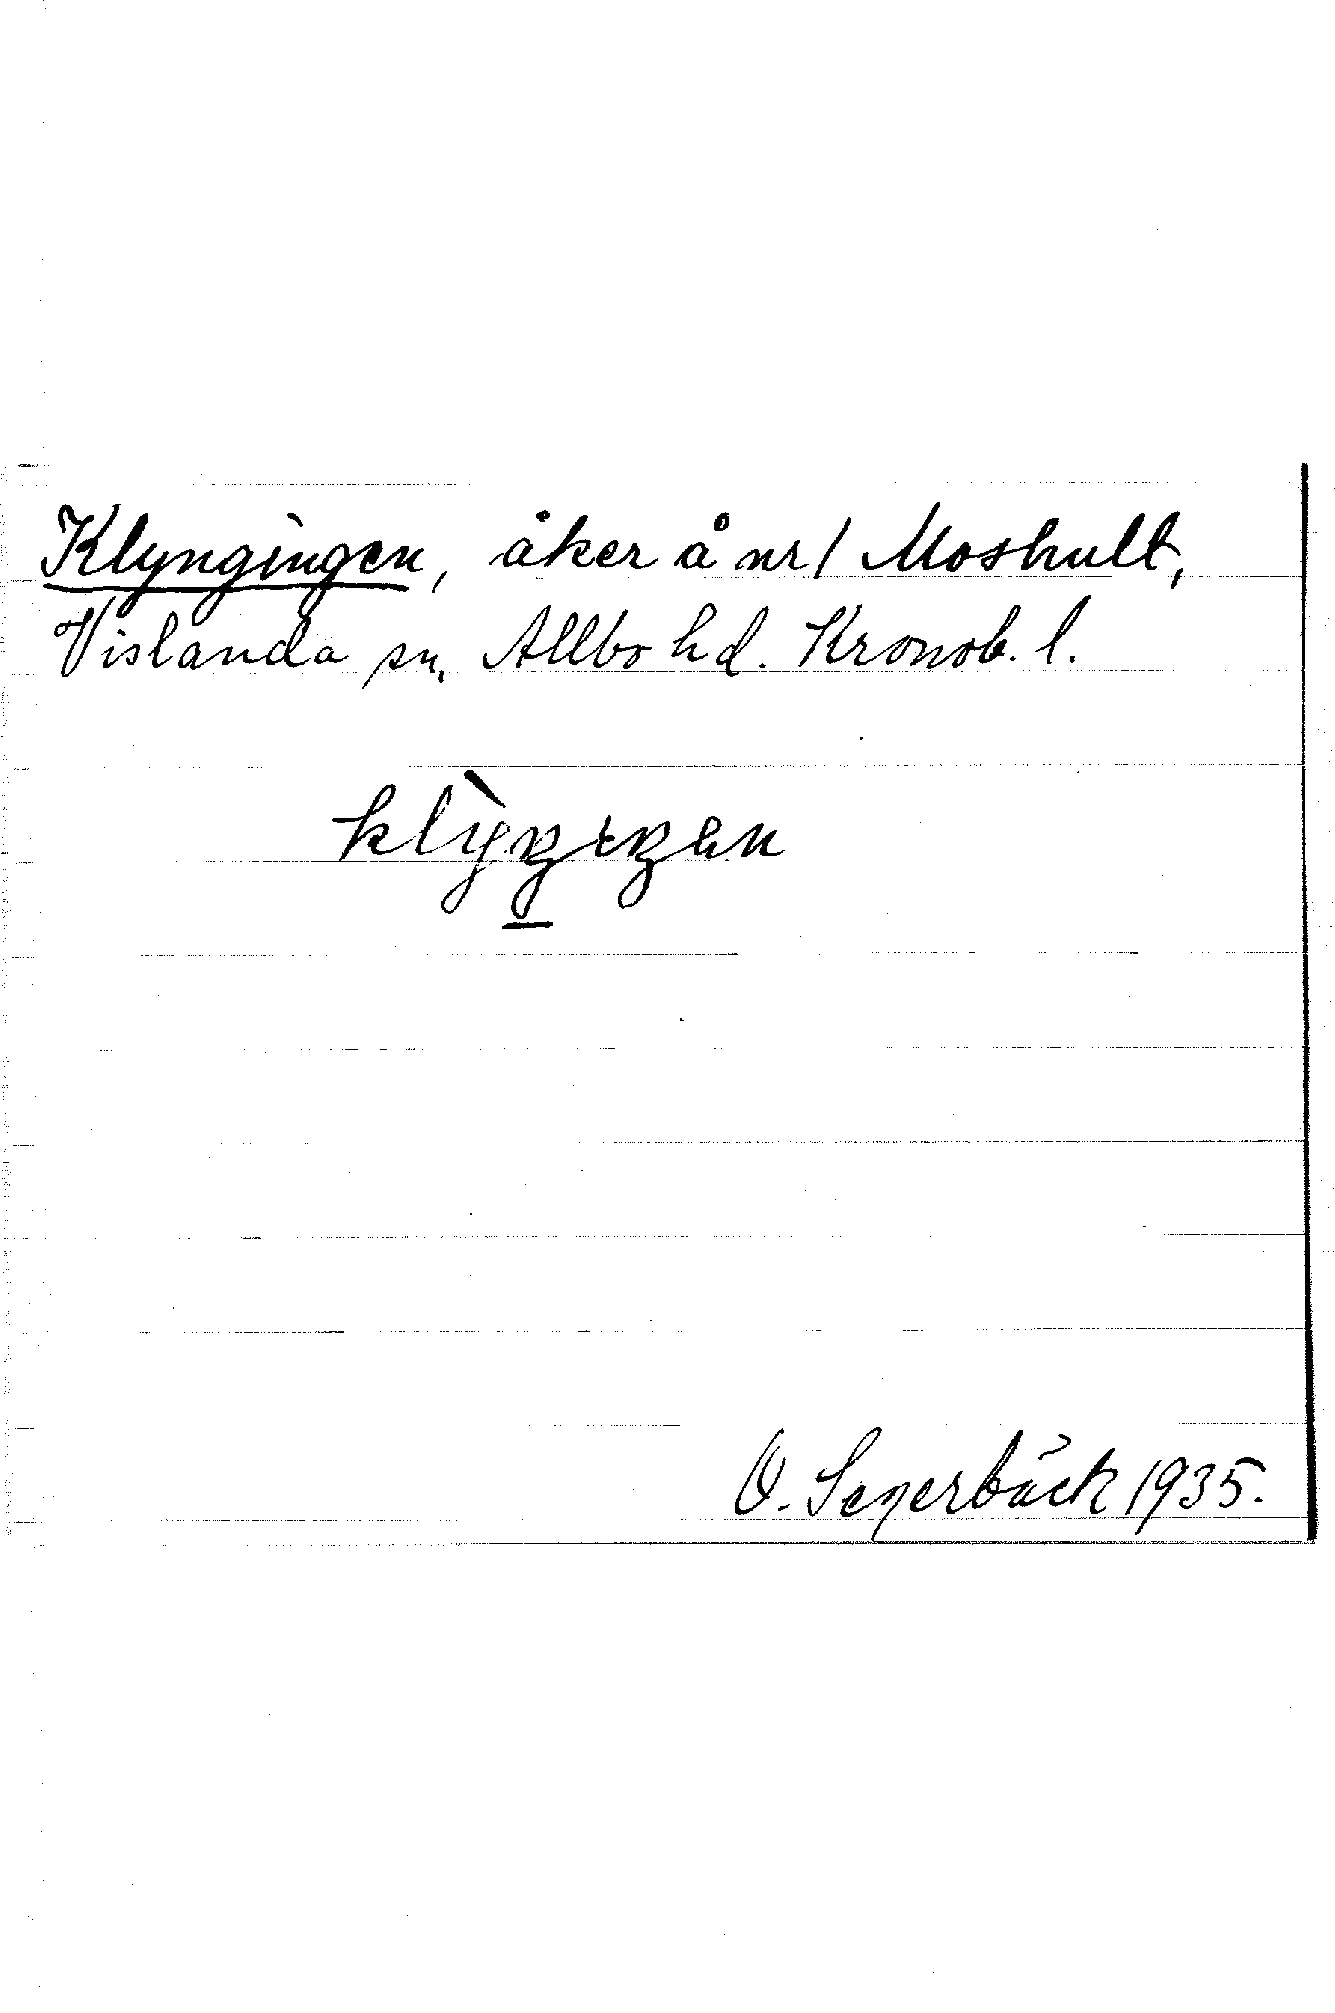 Klyngingen, åker å nr 1 Moshult,
Vislanda sn, Allbo hd. Kronob. l.
klỳŋɩŋən
O. Segerbäck 1935.